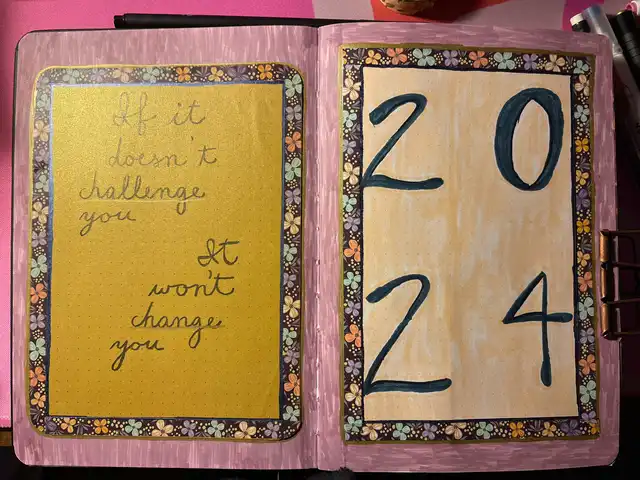 If it
doesn't
challenge
you
It
won't
change
you
2 0
2 4